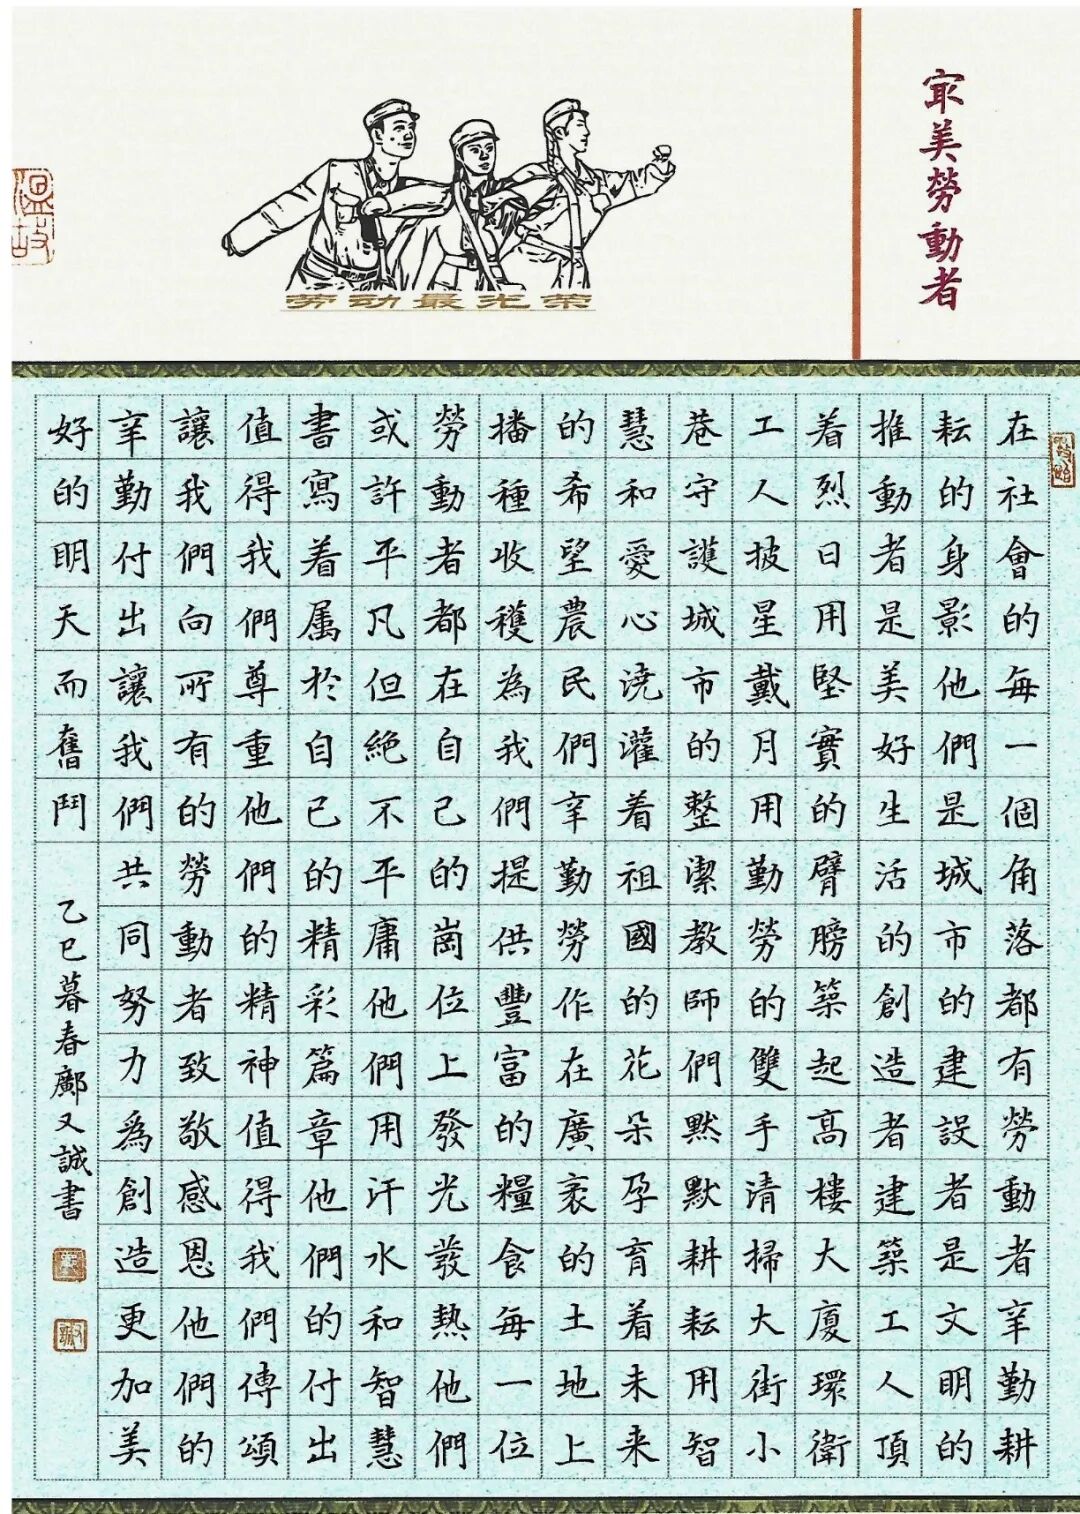 㝡美勞動者
劳动最光荣
温故
在社會的每一個角落都有勞動者辛勤耕
耘的身影他們是城市的建設者是文明的
推動者是美好生活的創造者建築工人頂
着烈日用堅實的臂膀築起高樓大廈環衛
工人披星戴月用勤勞的雙手清掃大街小
巷守護城市的整潔教師們默默耕耘用智
慧和愛心澆灌着祖國的花朵孕育着未来
的希望農民們辛勤勞作在廣袤的土地上
播種收穫為我們提供豐富的糧食每一位
勞動者都在自己的崗位上發光發熱他們
或許平凡但絕不平庸他們用汗水和智慧
書寫着属於自己的精彩篇章他們的付出
值得我們尊重他們的精神值得我們傳頌
讓我們向所有的勞動者致敬感恩他們的
辛勤付出讓我們共同努力爲創造更加美
好的明天而奮鬥
乙巳暮春鄺又誠書